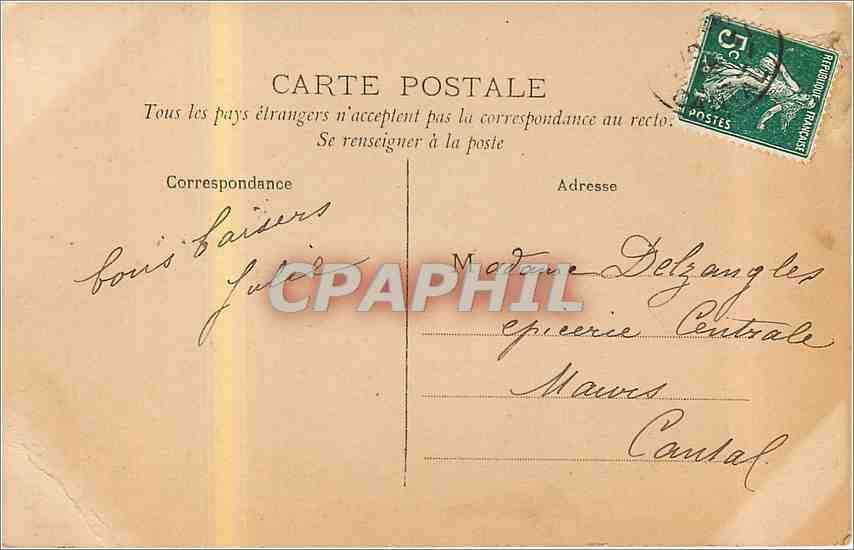 5c
RÉPUBLIQUE FRANÇAISE
POSTES
CARTE POSTALE
Tous les pays étrangers n'acceptent pas la correspondance au recto.
Se renseigner à la poste
Correspondance
Adresse
bons baisers
CPAPHIL
Madame Delzangles
epicerie Centrale
Maurs
Cantal